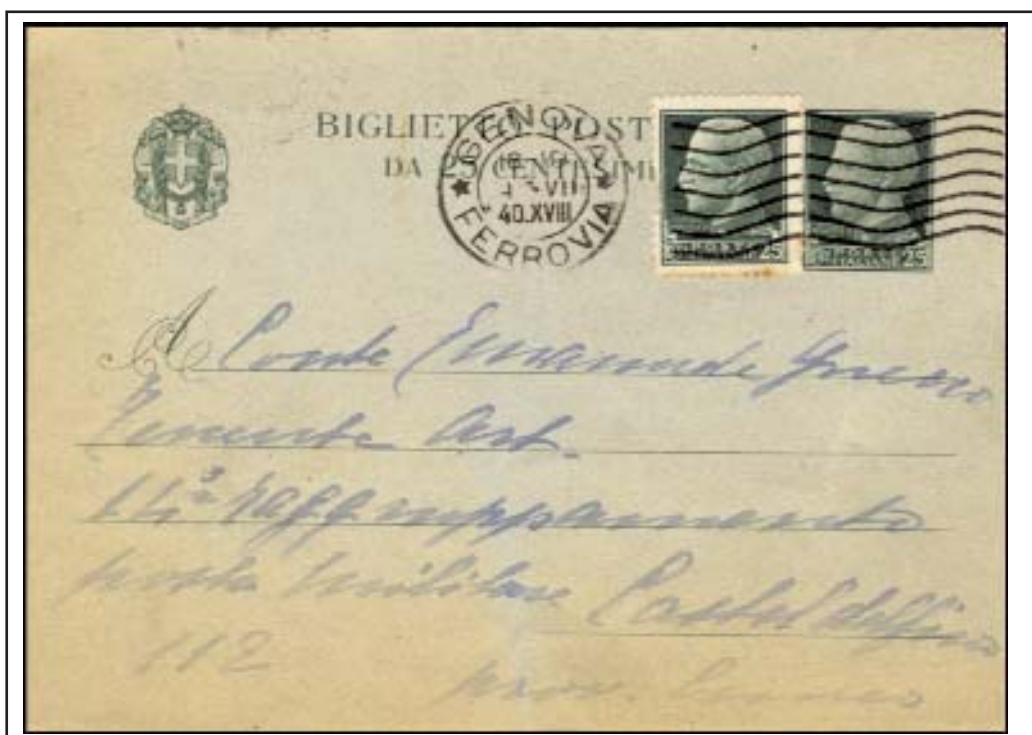 BIGLIETTO POST
DA 25 CENTESIMI
GENOVA
40.XVIII
FERROVIA
A Conte Emanuele
Tenente Art.
raggruppamento
posta militare Casteldelfino
112
prov. Cuneo